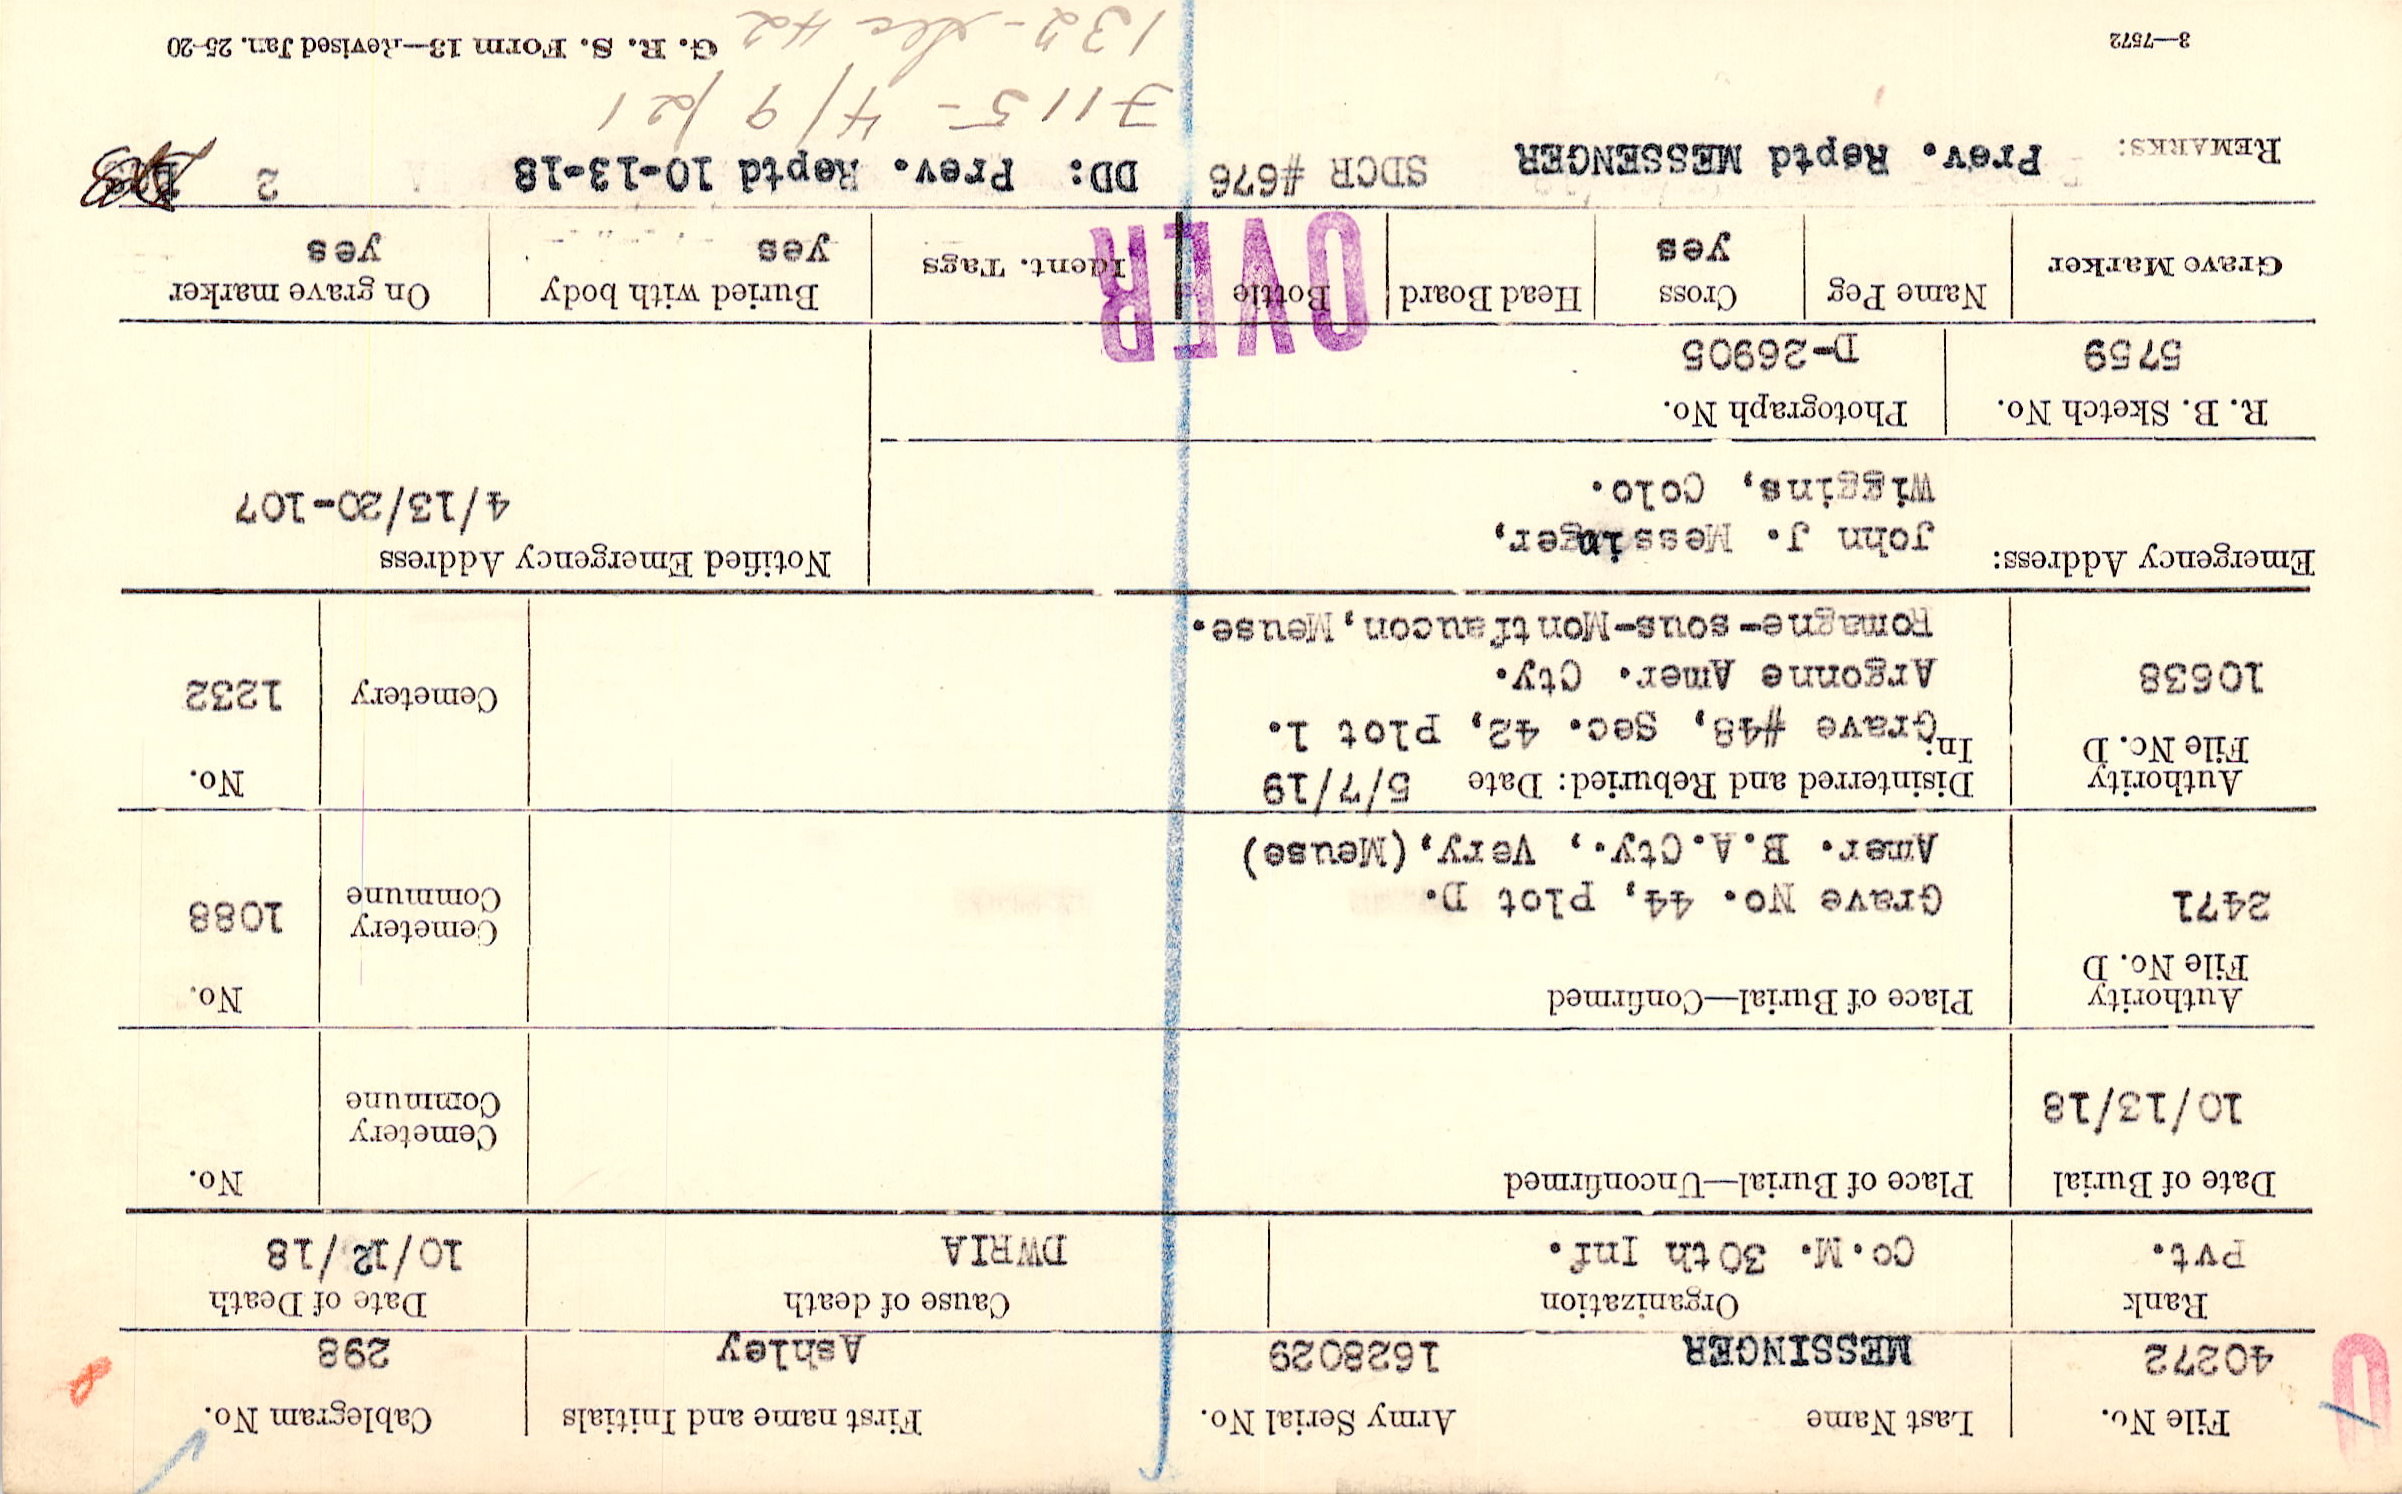 File No.
Last Name
Army Serial No.
First name and Initials
Cablegram No.
40272
MESSINGER
1628029
Ashley
298
8
Rank
Organization
Cause of death
Date of Death
Pvt.
Co. M. 30th Inf.
DWRIA
10/12/18
Date of Burial
Place of Burial—Unconfirmed
No.
10/13/18
Cemetery
Commune
Authority
File No. D
Place of Burial—Confirmed
No.
2471
Grave No. 44, Plot D.
Amer. B.A.Cty., Very,(Meuse)
Cemetery
Commune
1088
Authority
File No. D
Disinterred and Reburied: Date 5/7/19
No.
In:
Grave #48, sec. 42, plot 1.
10638
Argonne Amer. Cty.
Romagne-sous-Montfaucon,Meuse.
Cemetery
1232
Emergency Address:
John J. Messinger,
Wiggins, Colo.
Notified Emergency Address
4/13/20-107
R. B. Sketch No.
Photograph No.
5759
D-26905
OVER
Grave Marker
Name Peg
Cross
Head Board
Bottle
Ident. Tags
Buried with body
On grave marker
yes
yes
yes
REMARKS:
Prev. Reptd MESSENGER
SDCR #676
DD: Prev. Reptd 10-13-18
2
7115- 4/9/21
132- 42
3—7572
G. R. S. Form 13—Revised Jan. 25-20